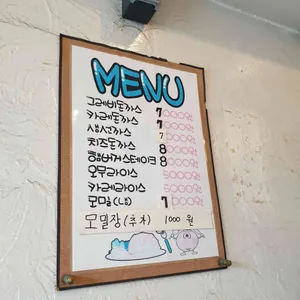 MENU
그레비돈까스 7000원
카레돈까스 7000원
생선까스 7000원
치즈돈까스 8000원
햄버거스테이크 8000원
오무라이스 6000원
카레라이스 6000원
모밀(냉) 7000원
모밀장(추가) 1000 원